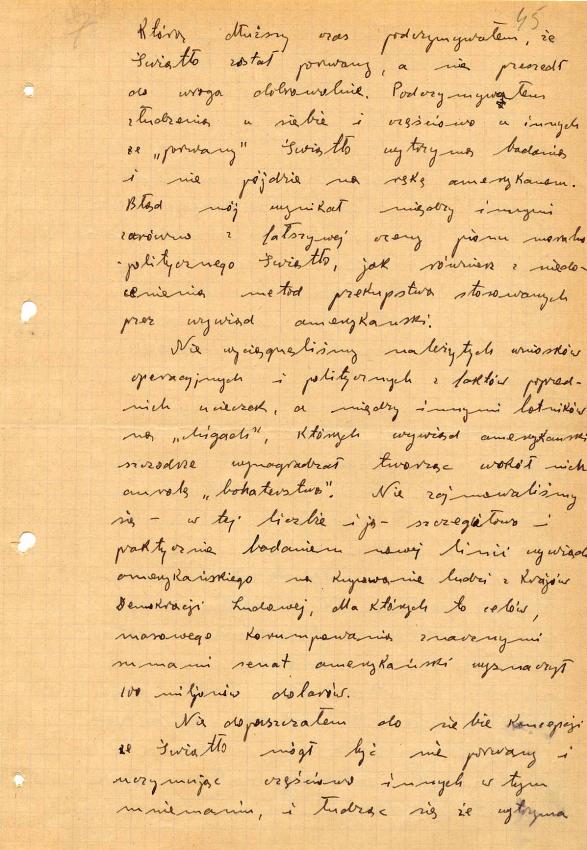 45
Którą dłuższy czas podtrzymywałem, że
Światło został porwany, a nie przeszedł
do wroga dobrowolnie. Podtrzymywałem
złudzenia u siebie i częściowo u innych
że „porwany" Światło wytrzyma badania
i nie pójdzie na rękę amerykanom.
Błąd mój wynikał między innymi
zarówno z fałszywej oceny pionu moralno
-politycznego Światło, jak również z niedo-
cenienia metod przekupstwa stosowanych
przez wywiad amerykański.
Nie wyciągnęliśmy należytych wniosków
operacyjnych i politycznych z faktów poprzed-
nich ucieczek, a między innymi lotników
na „Migach", których wywiad amerykański
szczodrze wynagradzał tworząc wokół nich
aureolę „bohaterstwa". Nie zajmowaliśmy
się - w tej liczbie i ja - szczegółowo i
praktycznie badaniem nowej linii wywiadu
amerykańskiego na kupowanie ludzi z Krajów
Demokracji Ludowej, dla których to celów,
masowego korumpowania znacznymi
sumami senat amerykański wyznaczył
100 milionów dolarów.
Nie dopuszczałem do siebie koncepcji
że Światło mógł być nie porwany i
utrzymując częściowo innych w tym
mniemaniu, i łudząc się że wytrzyma